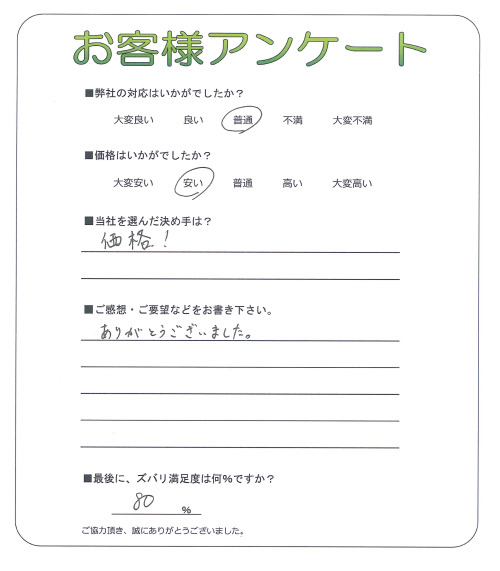 お客様アンケート
■弊社の対応はいかがでしたか？
大変良い 良い 普通 不満 大変不満
■価格はいかがでしたか？
大変安い 安い 普通 高い 大変高い
■当社を選んだ決め手は？
価格！
■ご感想・ご要望などをお書き下さい。
ありがとうございました。
■最後に、ズバリ満足度は何％ですか？
80 ％
ご協力頂き、誠にありがとうございました。